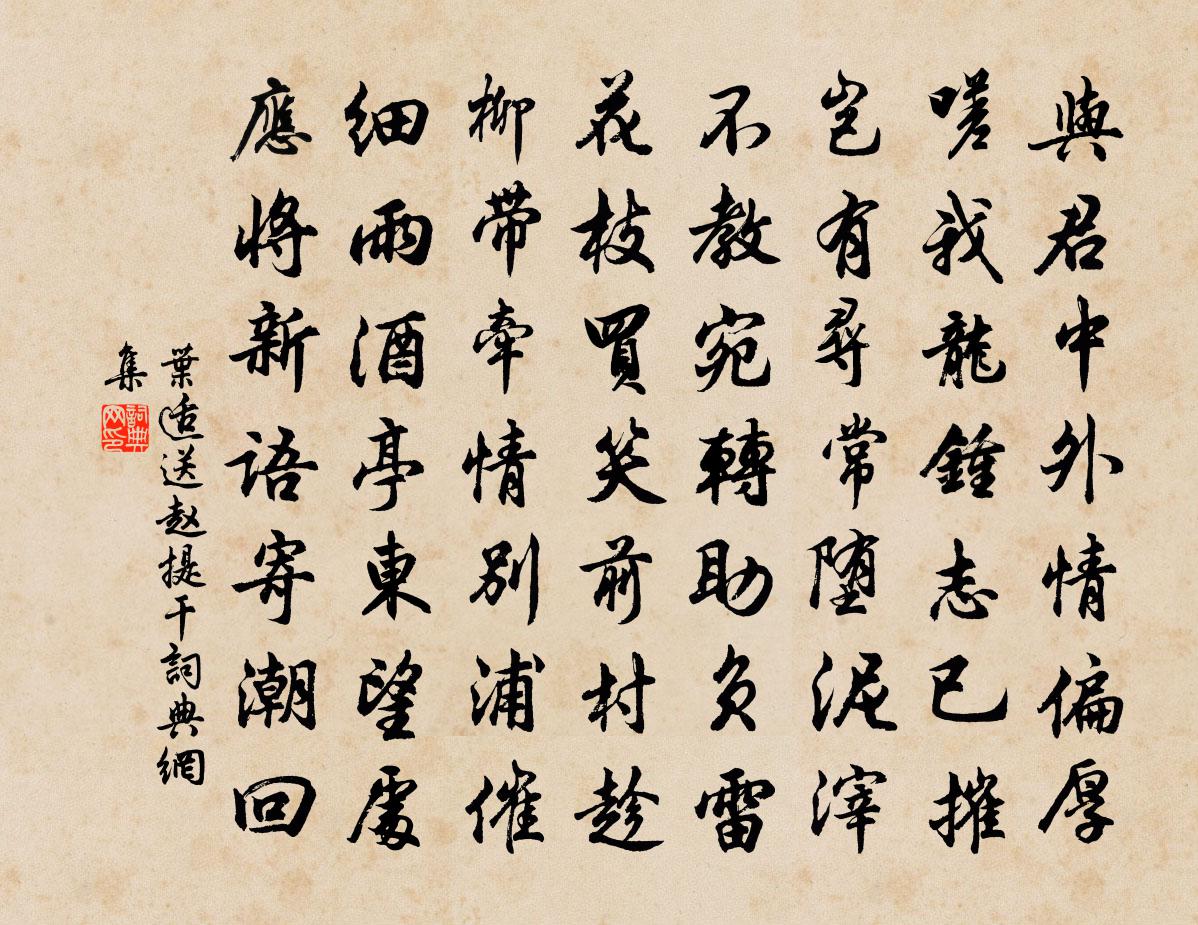 與君中外情偏厚
嗟我龍鍾志已摧
豈有尋常墮泥滓
不教宛轉助負雷
花枝買笑前村趁
柳帶牽情別浦催
細雨酒亭東望處
應將新語寄潮回
葉適送赵提干詞典網
集
詞典
网印